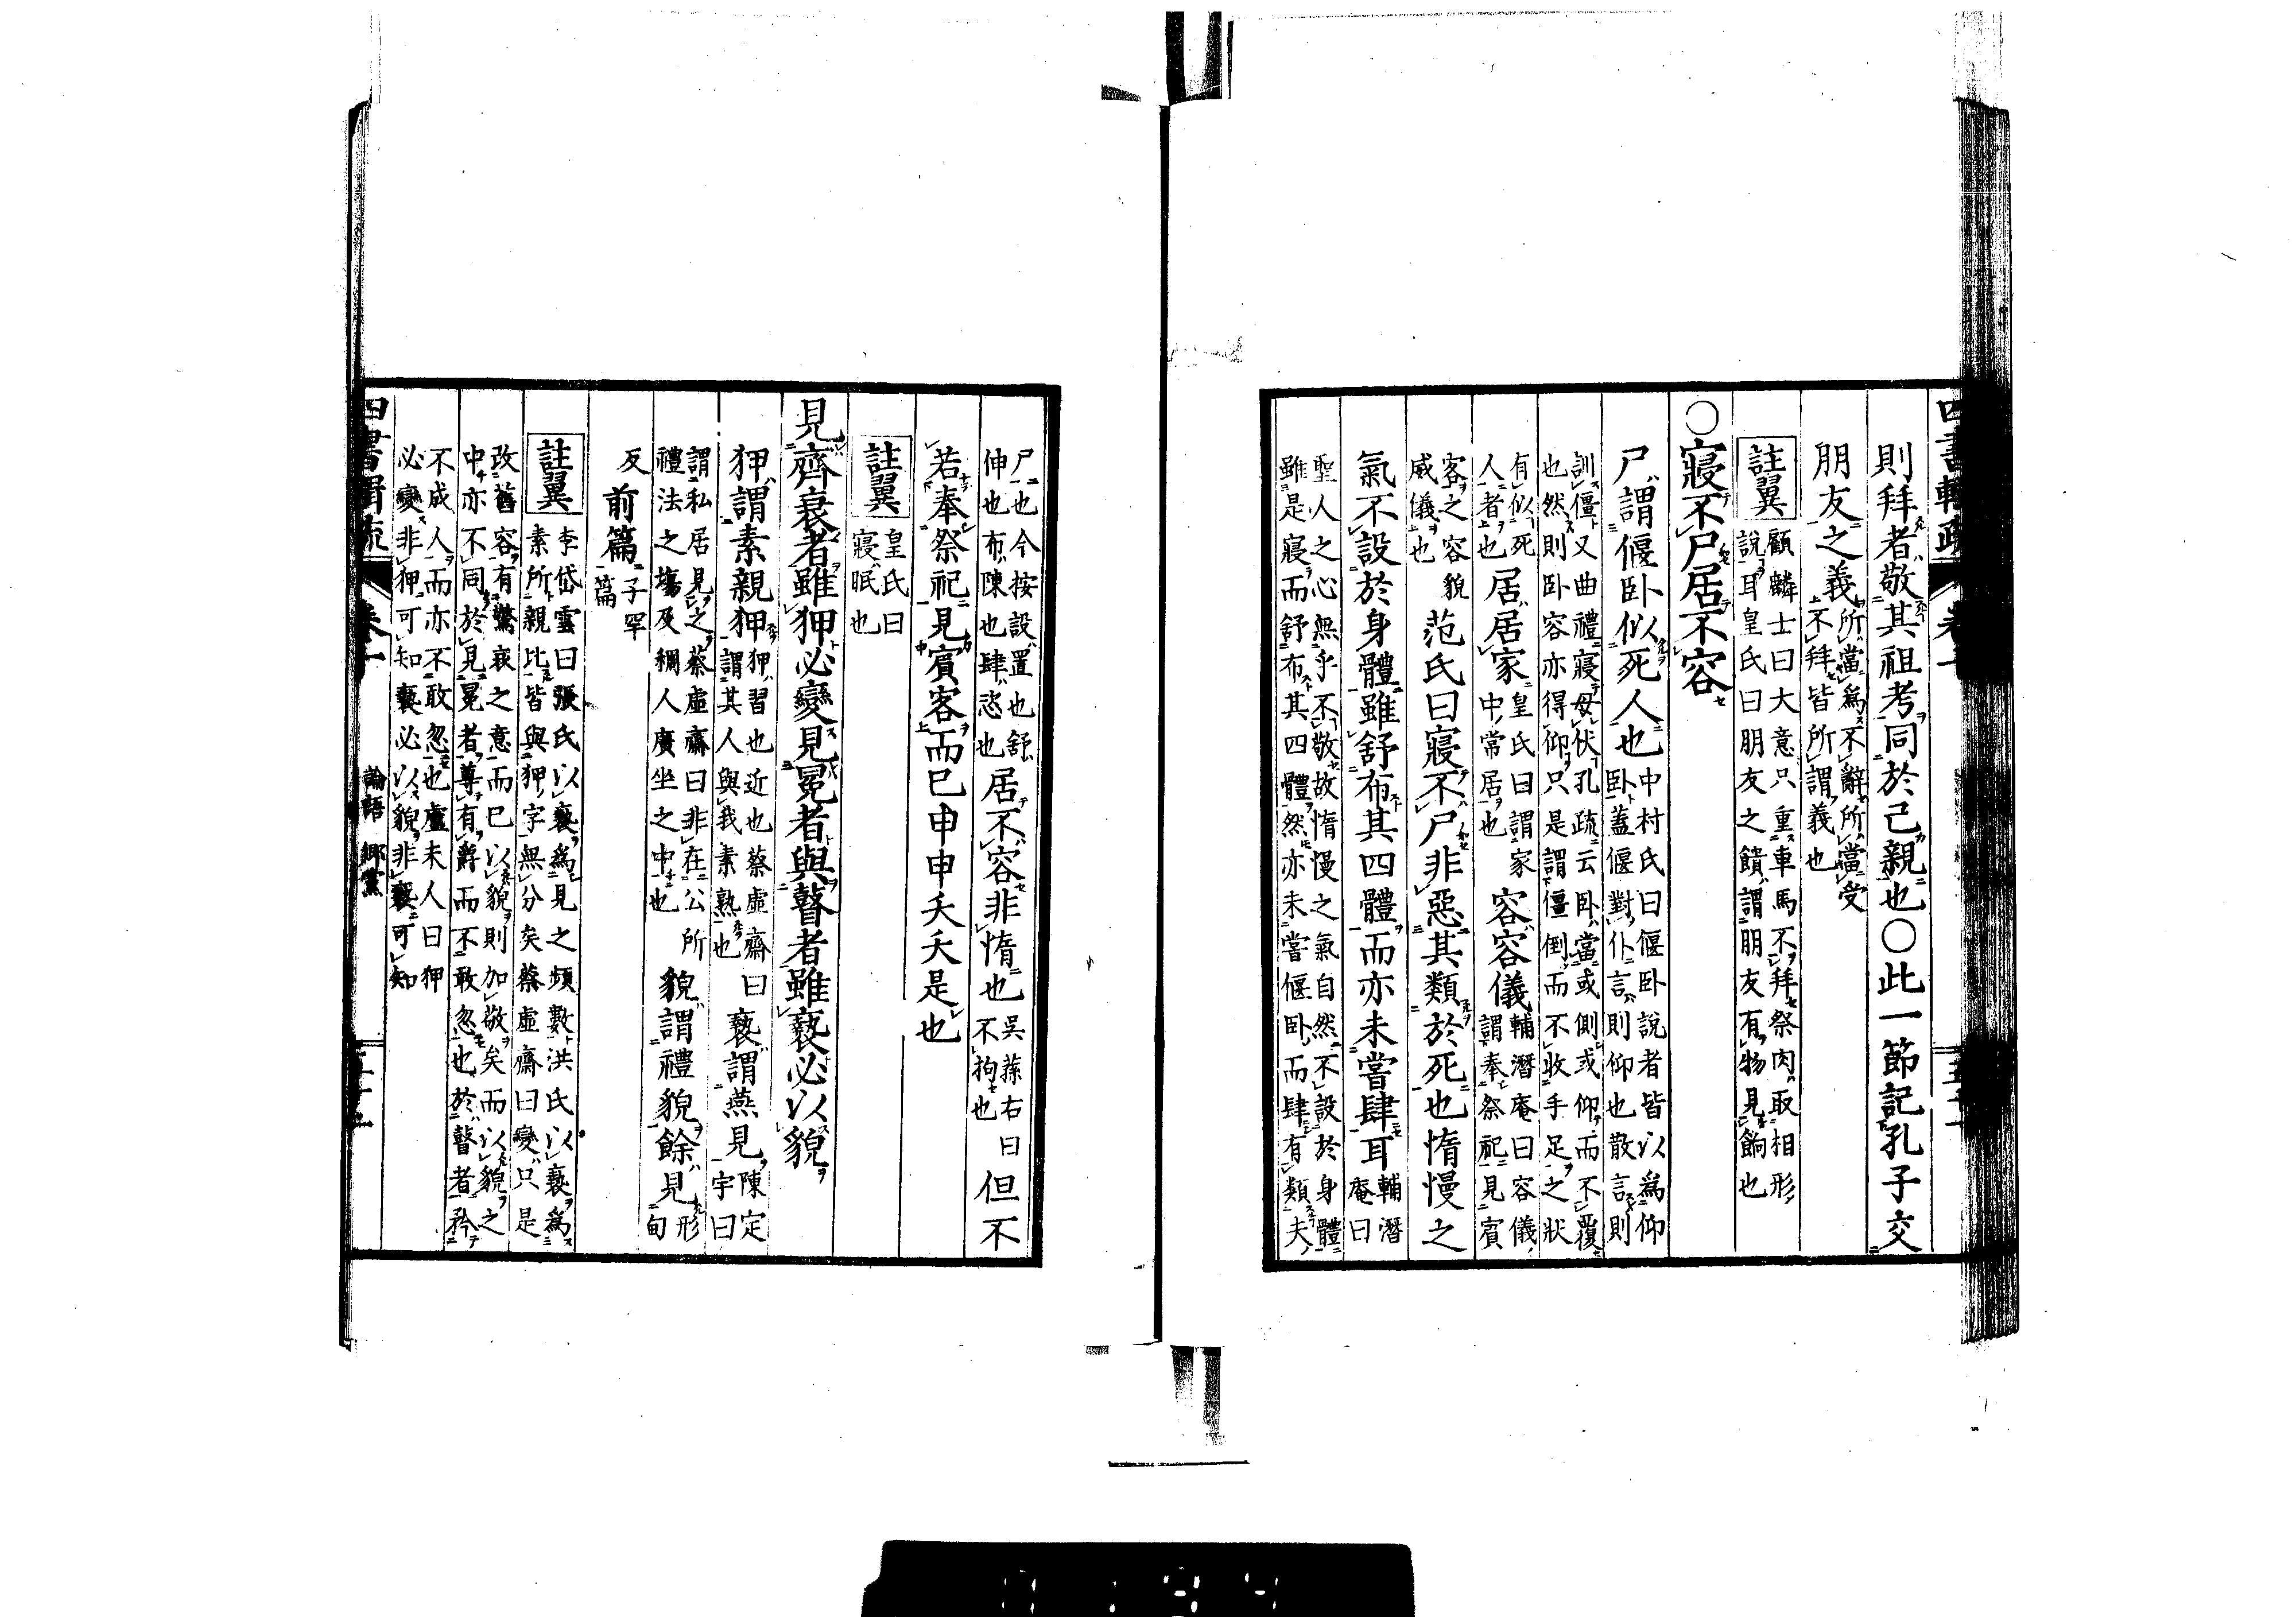 則拜者敬其祖考同於己親也〇此一節記孔子交
朋友之義所當爲不辭所當受
不拜皆所謂義也
註翼 顧麟士曰大意只重車馬不拜祭肉取相形
說耳皇氏曰朋友之饋謂朋友有物見餉也
〇寢不尸居不容
尸謂偃卧似死人也中村氏曰偃卧說者皆以爲仰
卧蓋偃對仆言則仰也散言則
訓僵又曲禮寢毋伏孔疏云卧當或側或仰而不覆
也然則卧容亦得仰只是謂僵倒而不收手足之狀
有似死
人者也居居家皇氏曰謂家
中常居也容容儀輔潛庵曰容儀
謂奉祭祀見賓
客之容貌
威儀也范氏曰寢不尸非惡其類於死也惰慢之
氣不設於身體雖舒布其四體而亦未嘗肆耳輔潛
庵曰
聖人之心無乎不敬故惰慢之氣自然不設於身體
雖是寢而舒布其四體然亦未嘗偃卧而肆有類夫
尸也今按設置也舒
伸也布陳也肆恣也居不容非惰也吳蓀右曰
不拘也但不
若奉祭祀見賓客而已申申夭夭是也
註翼 皇氏曰
寢眠也
見齊衰者雖狎必變見冕者與瞽者雖褻必以貌
狎謂素親狎狎習也近也蔡虛齋曰
謂其人與我素熟也褻謂燕見陳定
宇曰
謂私居見之蔡虛齋曰非在公所
禮法之場及稠人廣坐之中也貌謂禮貌餘見形
甸
反前篇子罕
篇
註翼 李岱雲曰張氏以褻爲見之頻數洪氏以褻爲
素所親比皆與狎字無分矣蔡虛齋曰變只是
改舊容有驚哀之意而已以貌則加敬矣而以貌之
中亦不同於見冕者尊有爵而不敢忽也於瞽者矜
不成人而亦不敢忽也盧未人曰狎
必變非狎可知褻必以貌非褻可知
四書輯疏 卷十 論語 鄉黨